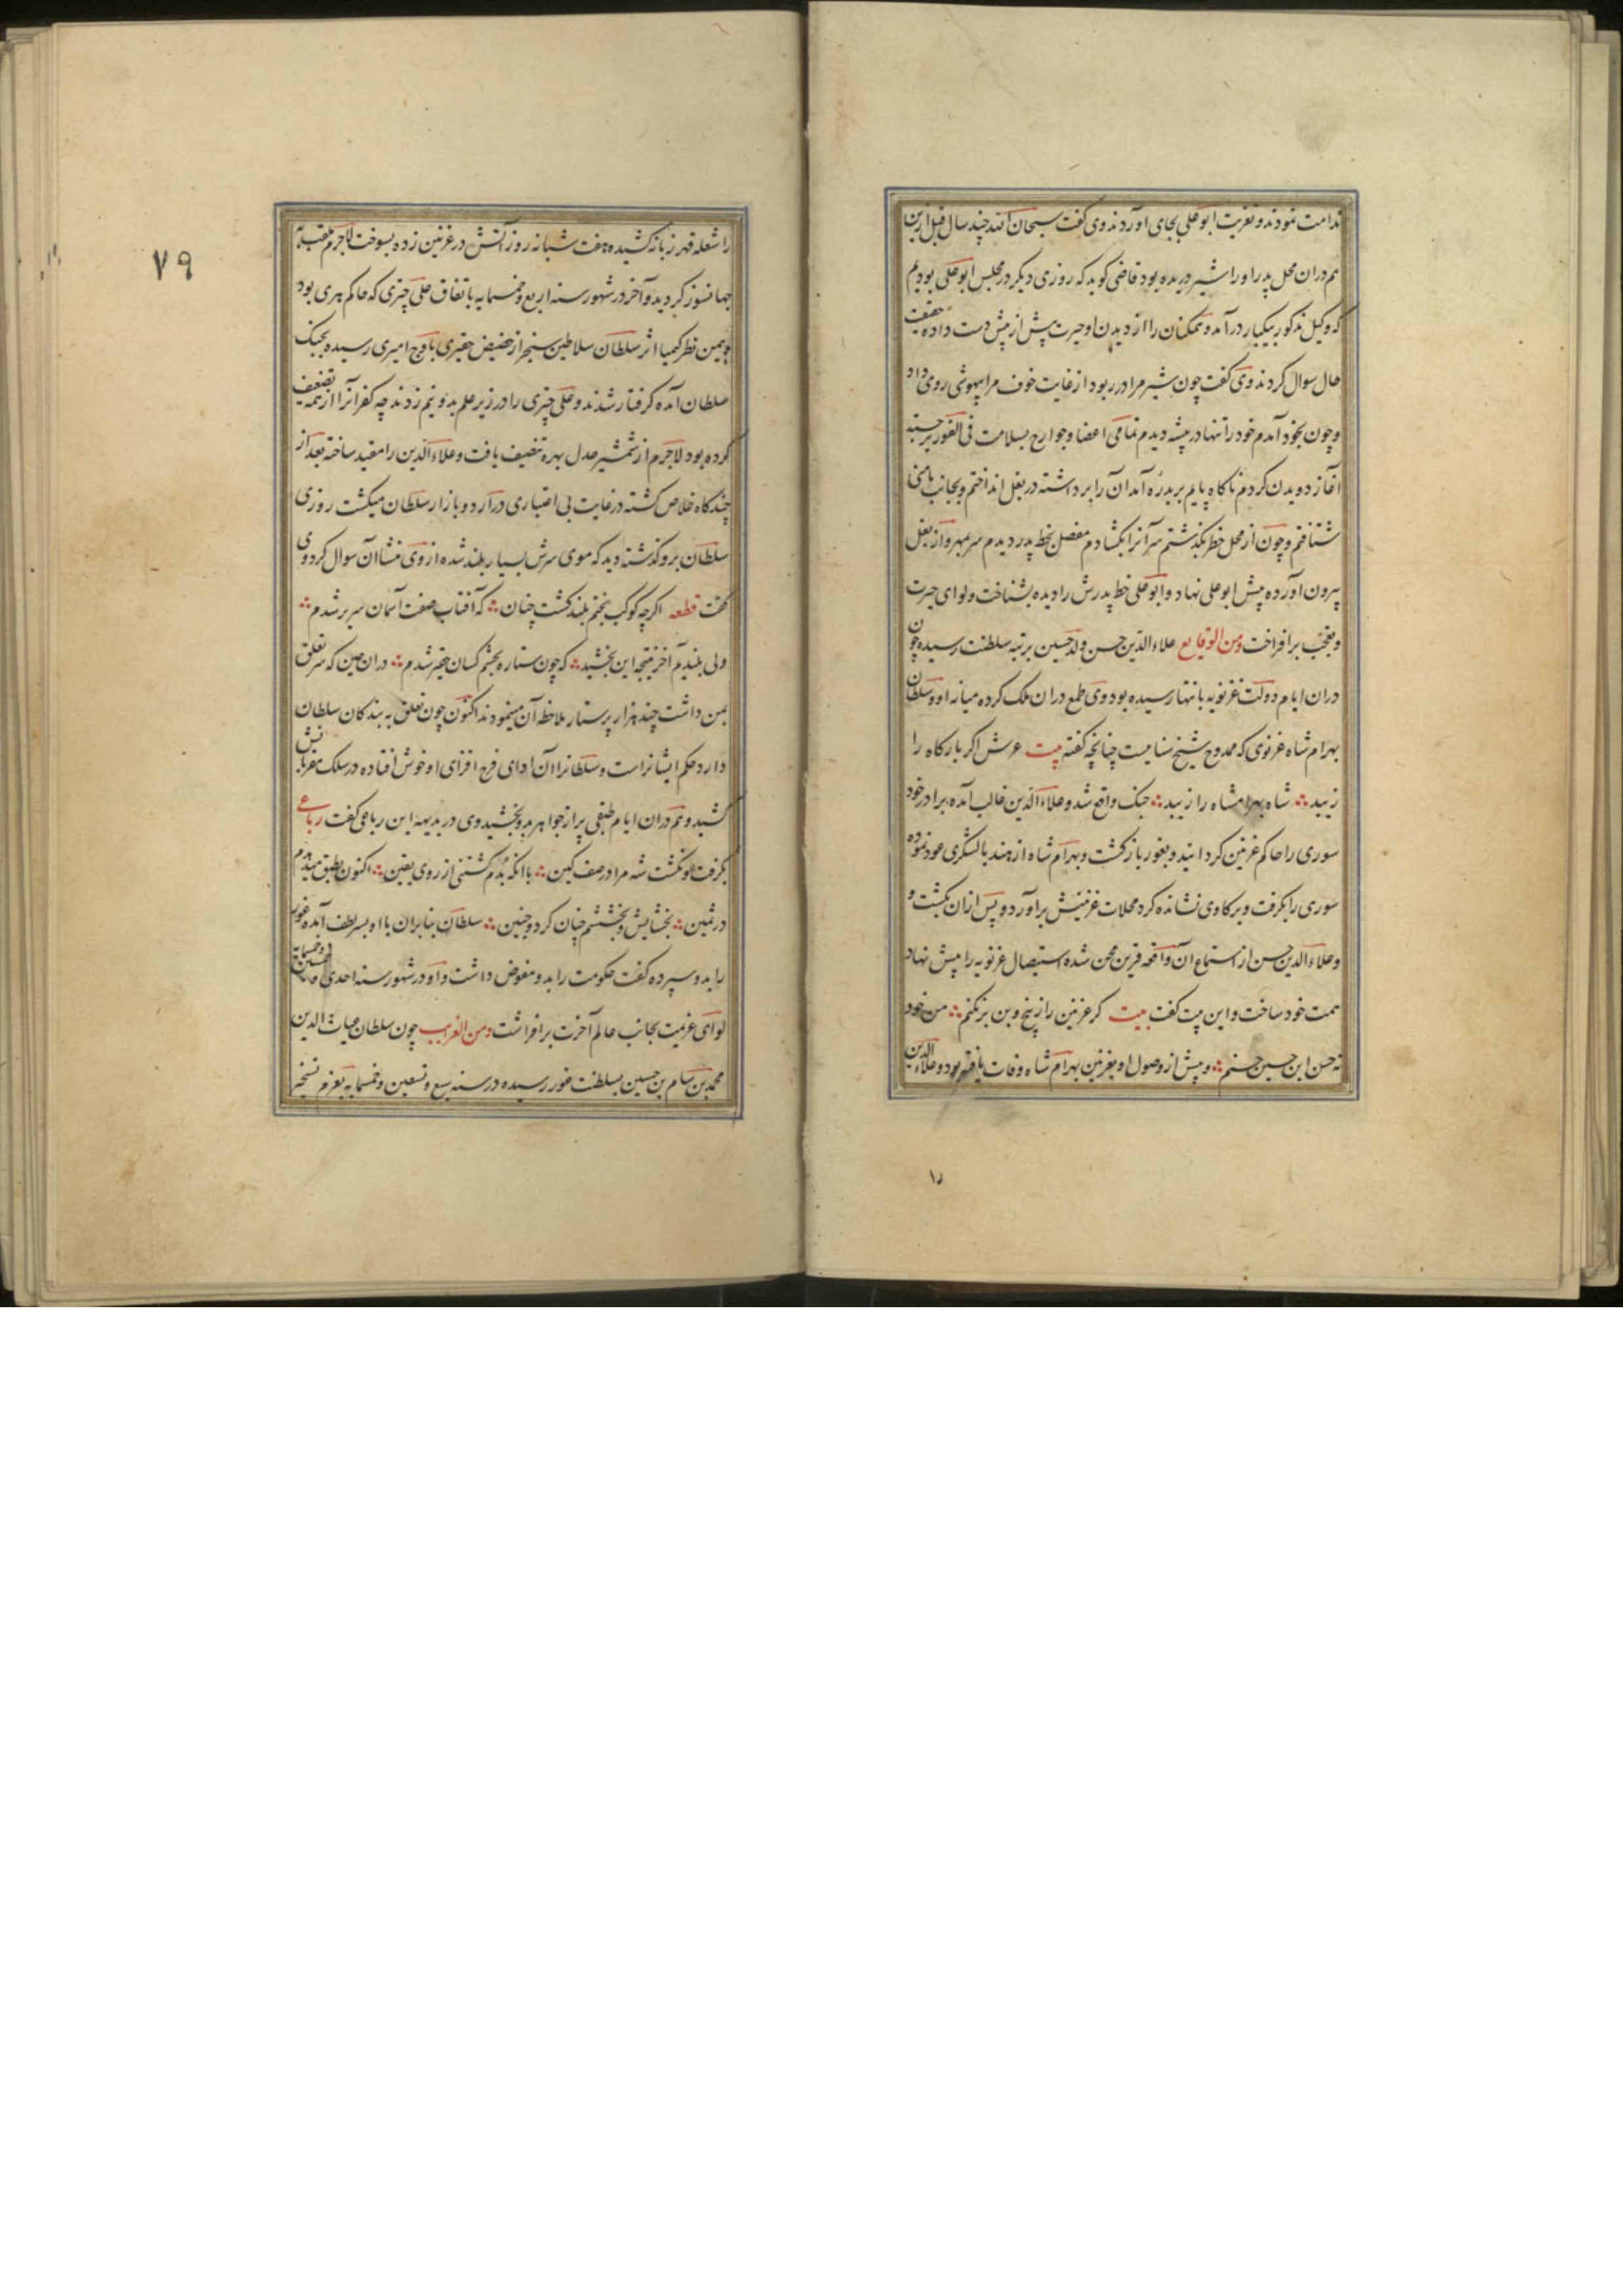 ندامت نمودند و تعزیت ابوعلی بجای آوردند وی گفت سبحان الله چند سال قبل ازین
هم دران محل پدر او را شیر دریده بود قاضی گوید که روزی دیگر در مجلس ابوعلی بودیم
که وکیل مذکور بیکبار درآمد و همکنان را از دیدن او حیرت پیش از پیش دست داده حقیقت
حال سوال کردند وی گفت چون شیر مرا در ربود از غایت خوف مرا بیهوشی روی داد
و چون بخود آمدم خود را تنها در بیشه دیدم تمامی اعضا و جوارح بسلامت فی الفور برجسته
آغاز دویدن کردم ناکاه پایم بر بدره آمد آن را برداشته در بغل انداختم و بجانب مامنی
شتافتم و چون از محل خطر بگذشتم سر آنرا بگشادم مفصل بخط پدر دیدم سر بمهر و از بغل
بیرون آورده پیش ابوعلی نهاد و ابوعلی خط پدرش را دیده بشناخت و لوای حیرت
و تعجب برافراخت ومن الوقایع علاءالدین حسن ولد حسین برتبه سلطنت رسیده چون
دران ایام دولت غزنویه بانتها رسیده بود وی طمع دران ملک کرده میانه او و سلطان
بهرام شاه غزنوی که ممدوح شیخ سناییست چنانچه گفته بیت عرش اگر بارگاه را
زیبد ∴ شاه بهرامشاه را زیبد ∴ جنک واقع شد و علاءالدین غالب آمده برادر خود
سوری را حاکم غزنین گردانید و بغور بازگشت و بهرام شاه از هند با لشکری عود نموده
سوری را بگرفت و بر گاوی نشانده گرد محلات غزنینش برآورد و پس ازان بکشت و
و علاءالدین حسن از استماع آن واقعه قرین محن شده استیصال غزنویه را پیش نهاد
همت خود ساخت و این بیت گفت بیت گر غزنین را ز بیخ و بن برنکنم ∴ من خود
نه حسن ابن حسین حسنم ∴ و پیش از وصول او بغزنین بهرام شاه وفات یافته بود و علاءالدین
۷۹
را شعله قهر زبانه کشیده هفت شبانه روز آتش در غزنین زده بسوخت لاجرم ملقب به
جهانسوز گردید و آخر در شهور سنه اربع و خمسمایه باتفاق علی چتری که حاکم هری بود
و بیمن نظر کیمیا اثر سلطان سلاطین سنجر از حضیض حقیری باوج امیری رسیده بجنک
سلطان آمده گرفتار شدند و علی چتری را در زیر علم بدو نیم زدند چه کفرانرا از نمه تضعیف
کرده بود لاجرم از شمشیر عدل بهره تنصیف یافت و علاءالدین را مقید ساخته بعد از
چندگاه خلاص گشته در غایت بی اعتباری در اردو بازار سلطان میگشت روزی
سلطان برو گذشته دید که موی سرش بسیار بلند شده از وی منشاآن سوال کرد وی
گفت قطعه اگرچه کوکب بختم بلند گشت چنان ∴ که آفتاب صفت آسمان سریر شدم ∴
ولی بلندیم آخر نتیجه این بخشید ∴ که چون ستاره بچشم کسان حقیر شدم ∴ دران حین که سر تعلق
بمن داشت چند هزار پرستار ملاحظه آن مینمودند اکنون چون تعلق به بندکان سلطان
دارد حکم ایشانراست و سلطانرا آن ادای فرح افزای او خوش افتاده در سلک مقربانش
کشید و هم دران ایام طبقی پر از جواهر بدو بخشید وی در بدیهه این رباعی گفت رباعی
بگرفت و نکشت شه مرا در صف کین ∴ با آنکه بدم کشتنی از روی یقین ∴ اکنون بطبق میدهدم
در ثمین ∴ بخشایش و بخششم چنان کرد و چنین ∴ سلطان بنابران با او بسر لطف آمده غور
را بدو سپرده گفت حکومت را بدو مفوض داشت و او در شهور سنه احدی و خمسین و خمسمایه
لوای عزیمت بجانب عالم آخرت برافراشت ومن الغرایب چون سلطان غیاث الدین
محمد بن سام بن حسین بسلطنت غور رسیده در سنه سبع و تسعین و خمسمایه بعزم تسخیر